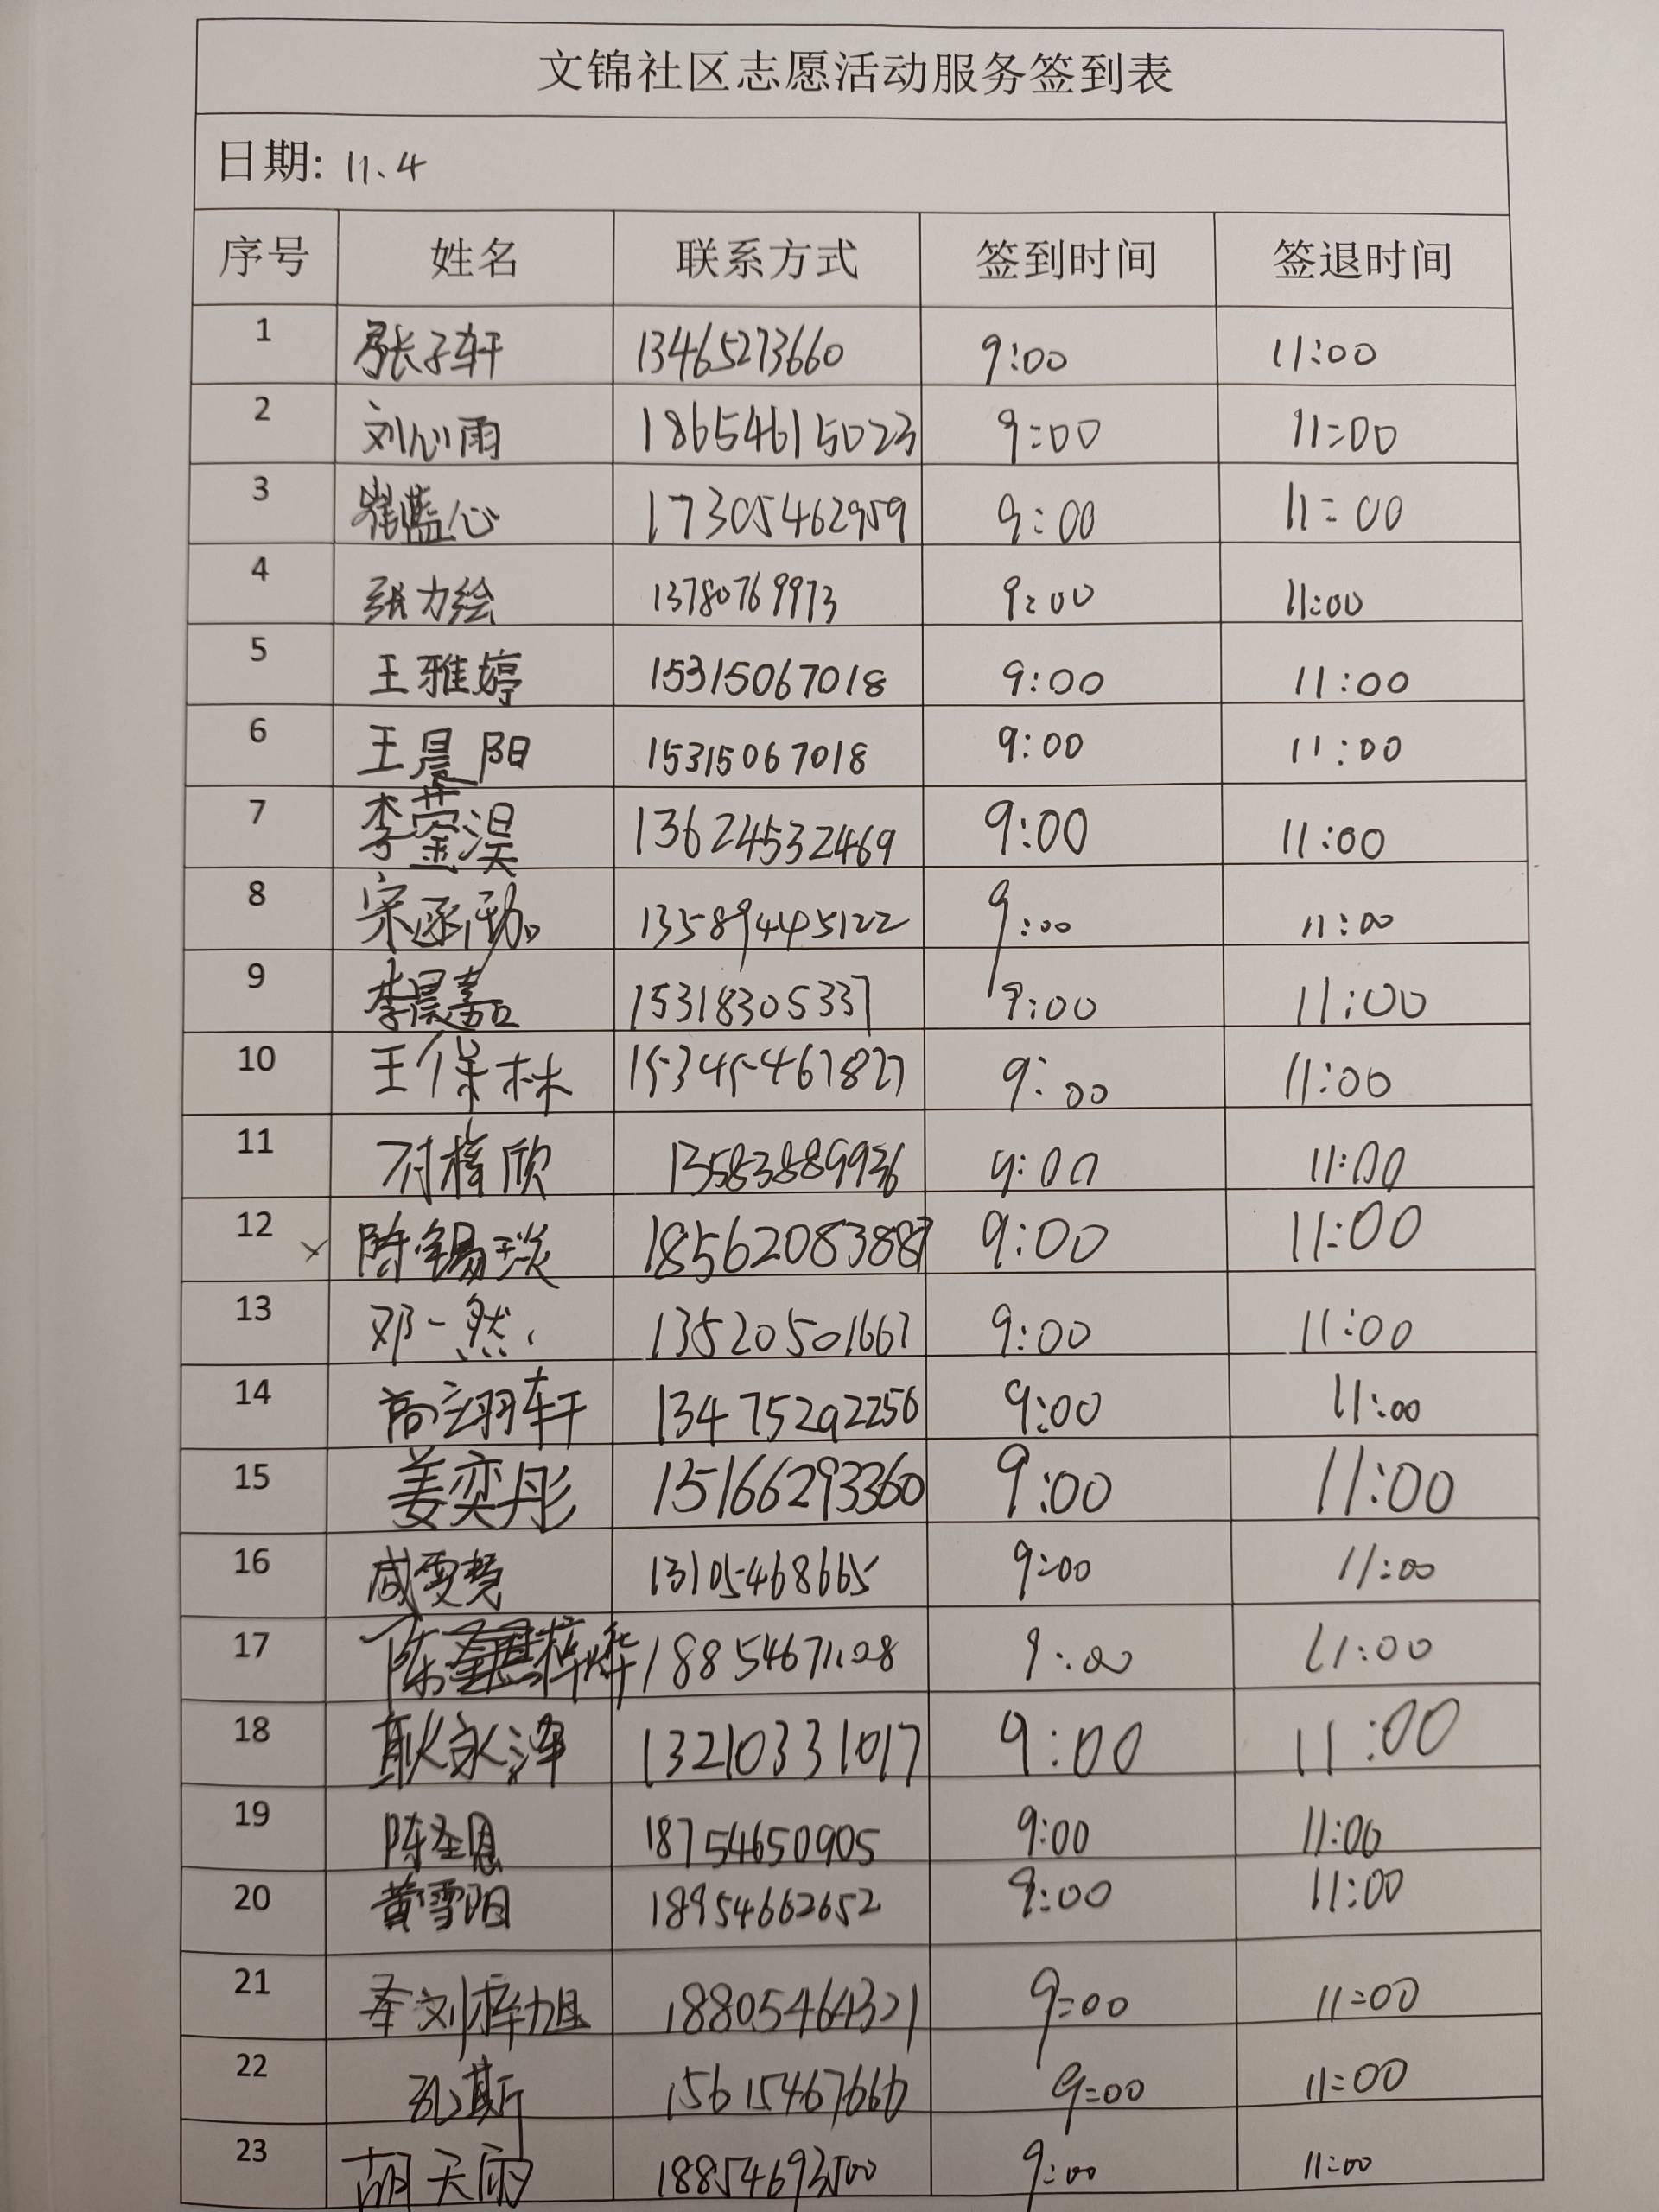 文锦社区志愿活动服务签到表
日期: 11.4
序号 姓名 联系方式 签到时间 签退时间
1 张子轩 13465273660 9:00 11:00
2 刘心雨 18654615023 9:00 11:00
3 崔蓝心 17305462959 9:00 11:00
4 张力绘 13780769973 9:00 11:00
5 王雅婷 15315067018 9:00 11:00
6 王晨阳 15315067018 9:00 11:00
7 李蓥淏 13624532469 9:00 11:00
8 宋函 13589445122 9:00 11:00
9 李晨嘉 15318305337 9:00 11:00
10 王保林 15345467827 9:00 11:00
11 付梓欣 13583889936 9:00 11:00
12 陈锡琰 18562083887 9:00 11:00
13 邓一然 13520501667 9:00 11:00
14 高翊轩 13475292256 9:00 11:00
15 姜奕彤 15166293360 9:00 11:00
16 咸雯慧 13105468665 9:00 11:00
17 陈梓烨 18854671108 9:00 11:00
18 耿永泽 13210331017 9:00 11:00
19 陈圣恩 18754650905 9:00 11:00
20 黄雪阳 18954662652 9:00 11:00
21 刘梓旭 18805464321 9:00 11:00
22 孔斯 15615467666 9:00 11:00
23 胡天雨 18854693500 9:00 11:00